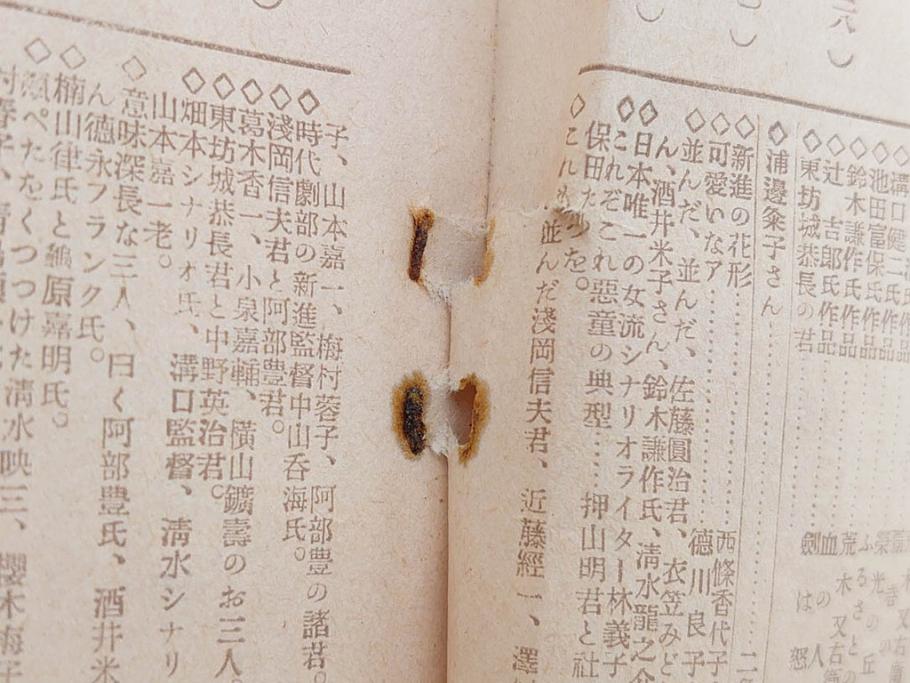 元）
）
）
溝口健二氏作品
池田富保氏作品
鈴木謙作氏作品
◇辻　吉郎氏作品
◇東坊城恭長の君
荒木又右衛
ふるさと
血の人
劍は
怒
◇浦邊粂子さん
◇新進の花形 西條香代子
◇可愛いなア 德川良子
◇並んだ、並んだ、佐藤圓治君、衣笠みど
ん、酒井米子さん、鈴木謙作氏、清水龍之介
◇日本唯一の女流シナリオライター林義子
◇これぞこれ惡童の典型…押山明君と社
保田たつを。
◇これも並んだ淺岡信夫君、近藤經一、澤
子、山本嘉一、梅村蓉子、阿部豊の諸君。
◇時代劇部の新進監督中山呑海氏。
◇淺岡信夫君と阿部豊君。
◇葛木香一、小泉嘉輔、橫山鑛壽のお三人。
◇東坊城恭長君と中野英治君。
◇畑本シナリオ氏、溝口監督、清水シナリ
山本嘉一老。
◇意味深長な三人、曰く阿部豊氏、酒井米
ん德永フランク氏。
◇楠山律氏と鵜原嘉明氏。
◇頬ぺたをくつつけた清水映三、櫻木梅子
村春子、